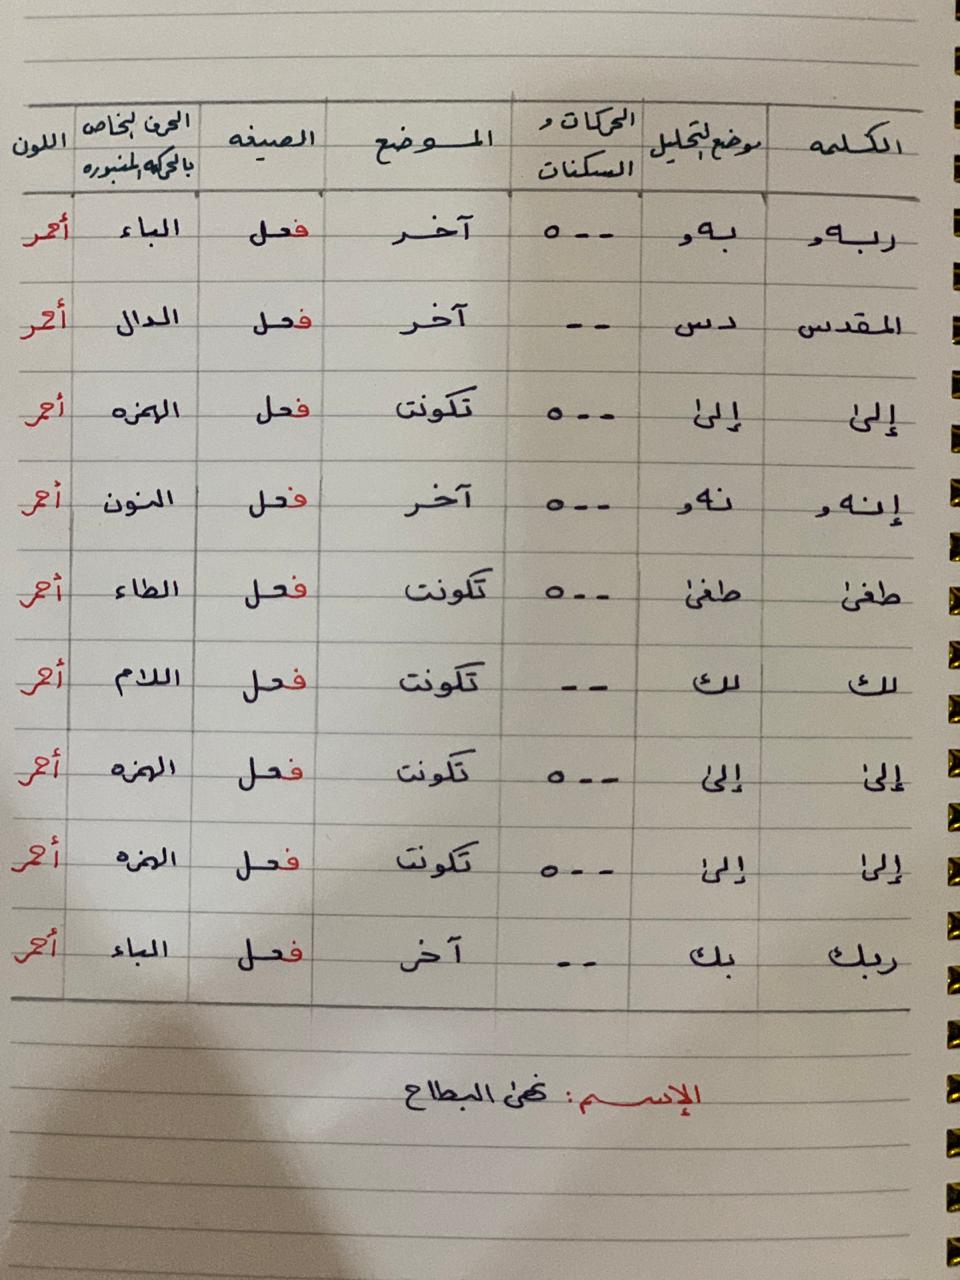 الكلمه موضع التحليل الحركات و السكنات الموضع الصيغه الحرف الخاص بالحركه المنبوره اللون
ربه و به و - - ه آخر فعل الباء أحمر
المقدس دس - - آخر فعل الدال أحمر
إلىٰ إلىٰ - - ه تكونت فعل الهمزه أحمر
إنه و نه و - - ه آخر فعل النون أحمر
طغىٰ طغىٰ - - ه تكونت فعل الطاء أحمر
لك لك - - تكونت فعل اللام أحمر
إلىٰ إلىٰ - - ه تكونت فعل الهمزه أحمر
إلىٰ إلىٰ - - ه تكونت فعل الهمزه أحمر
ربك بك - - آخر فعل الباء أحمر
الإسم: نهىٰ البطاح